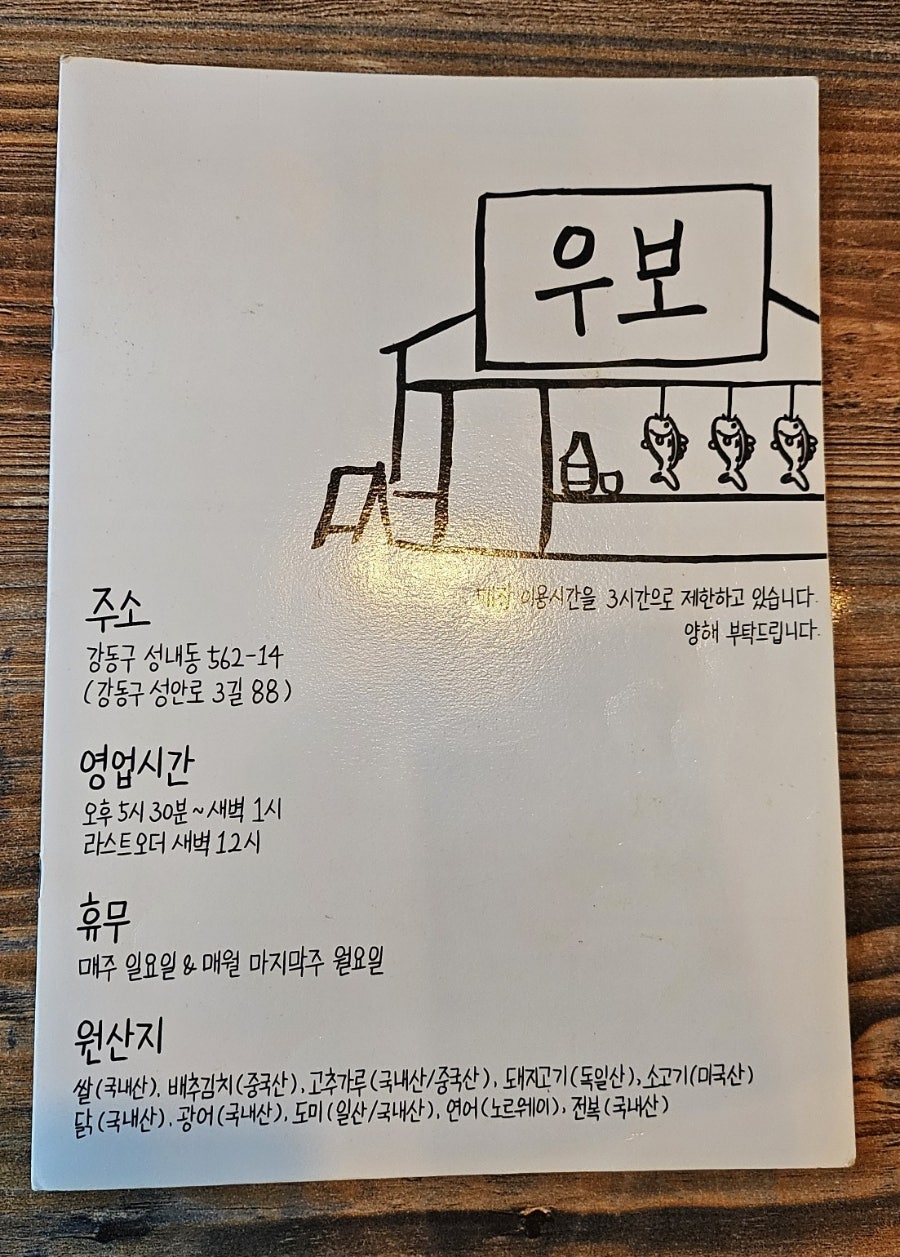 우보
매장 이용시간을 3시간으로 제한하고 있습니다.
양해 부탁드립니다.
주소
강동구 성내동 562-14
(강동구 성안로 3길 88)
영업시간
오후 5시 30분 ~ 새벽 1시
라스트오더 새벽 12시
휴무
매주 일요일 & 매월 마지막주 월요일
원산지
쌀(국내산), 배추김치(중국산), 고추가루(국내산/중국산), 돼지고기(독일산), 소고기(미국산)
닭(국내산), 광어(국내산), 도미(일산/국내산), 연어(노르웨이), 전복(국내산)